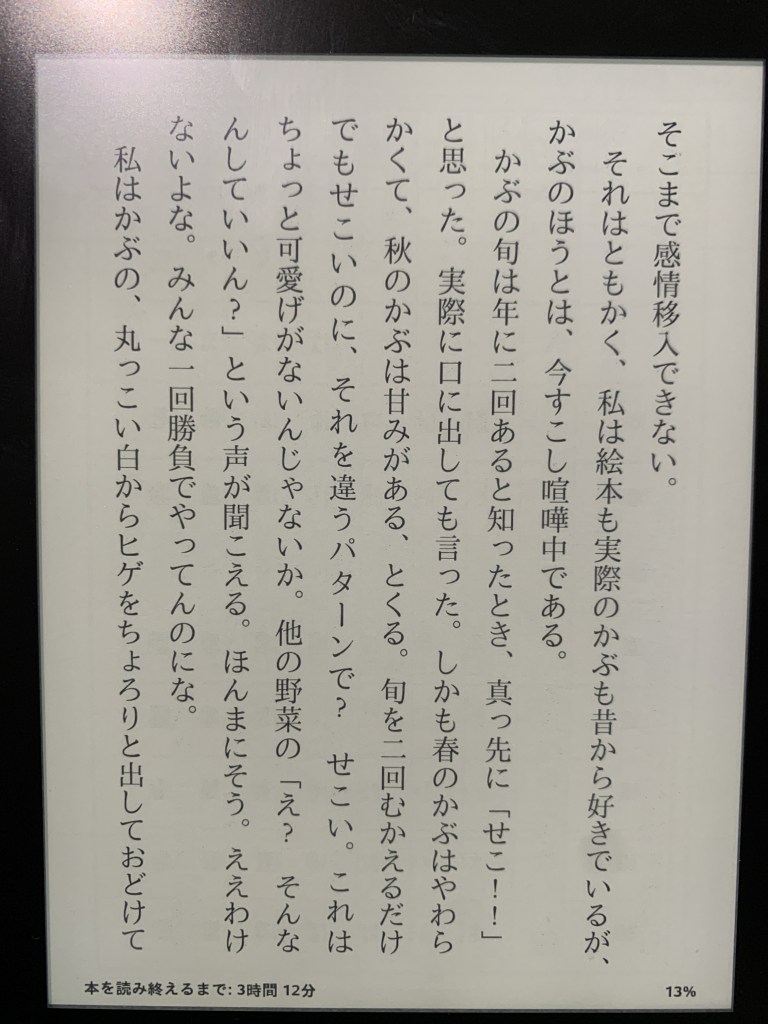 そこまで感情移入できない。
それはともかく、私は絵本も実際のかぶも昔から好きでいるが、
かぶのほうとは、今すこし喧嘩中である。
かぶの旬は年に二回あると知ったとき、真っ先に「せこ！！」
と思った。実際に口に出しても言った。しかも春のかぶはやわら
かくて、秋のかぶは甘みがある、とくる。旬を二回むかえるだけ
でもせこいのに、それを違うパターンで？　せこい。これは
ちょっと可愛げがないんじゃないか。他の野菜の「え？　そんな
んしていいん？」という声が聞こえる。ほんまにそう。ええわけ
ないよな。みんな一回勝負でやってんのにな。
私はかぶの、丸っこい白からヒゲをちょろりと出しておどけて
本を読み終えるまで: 3時間 12分
13%